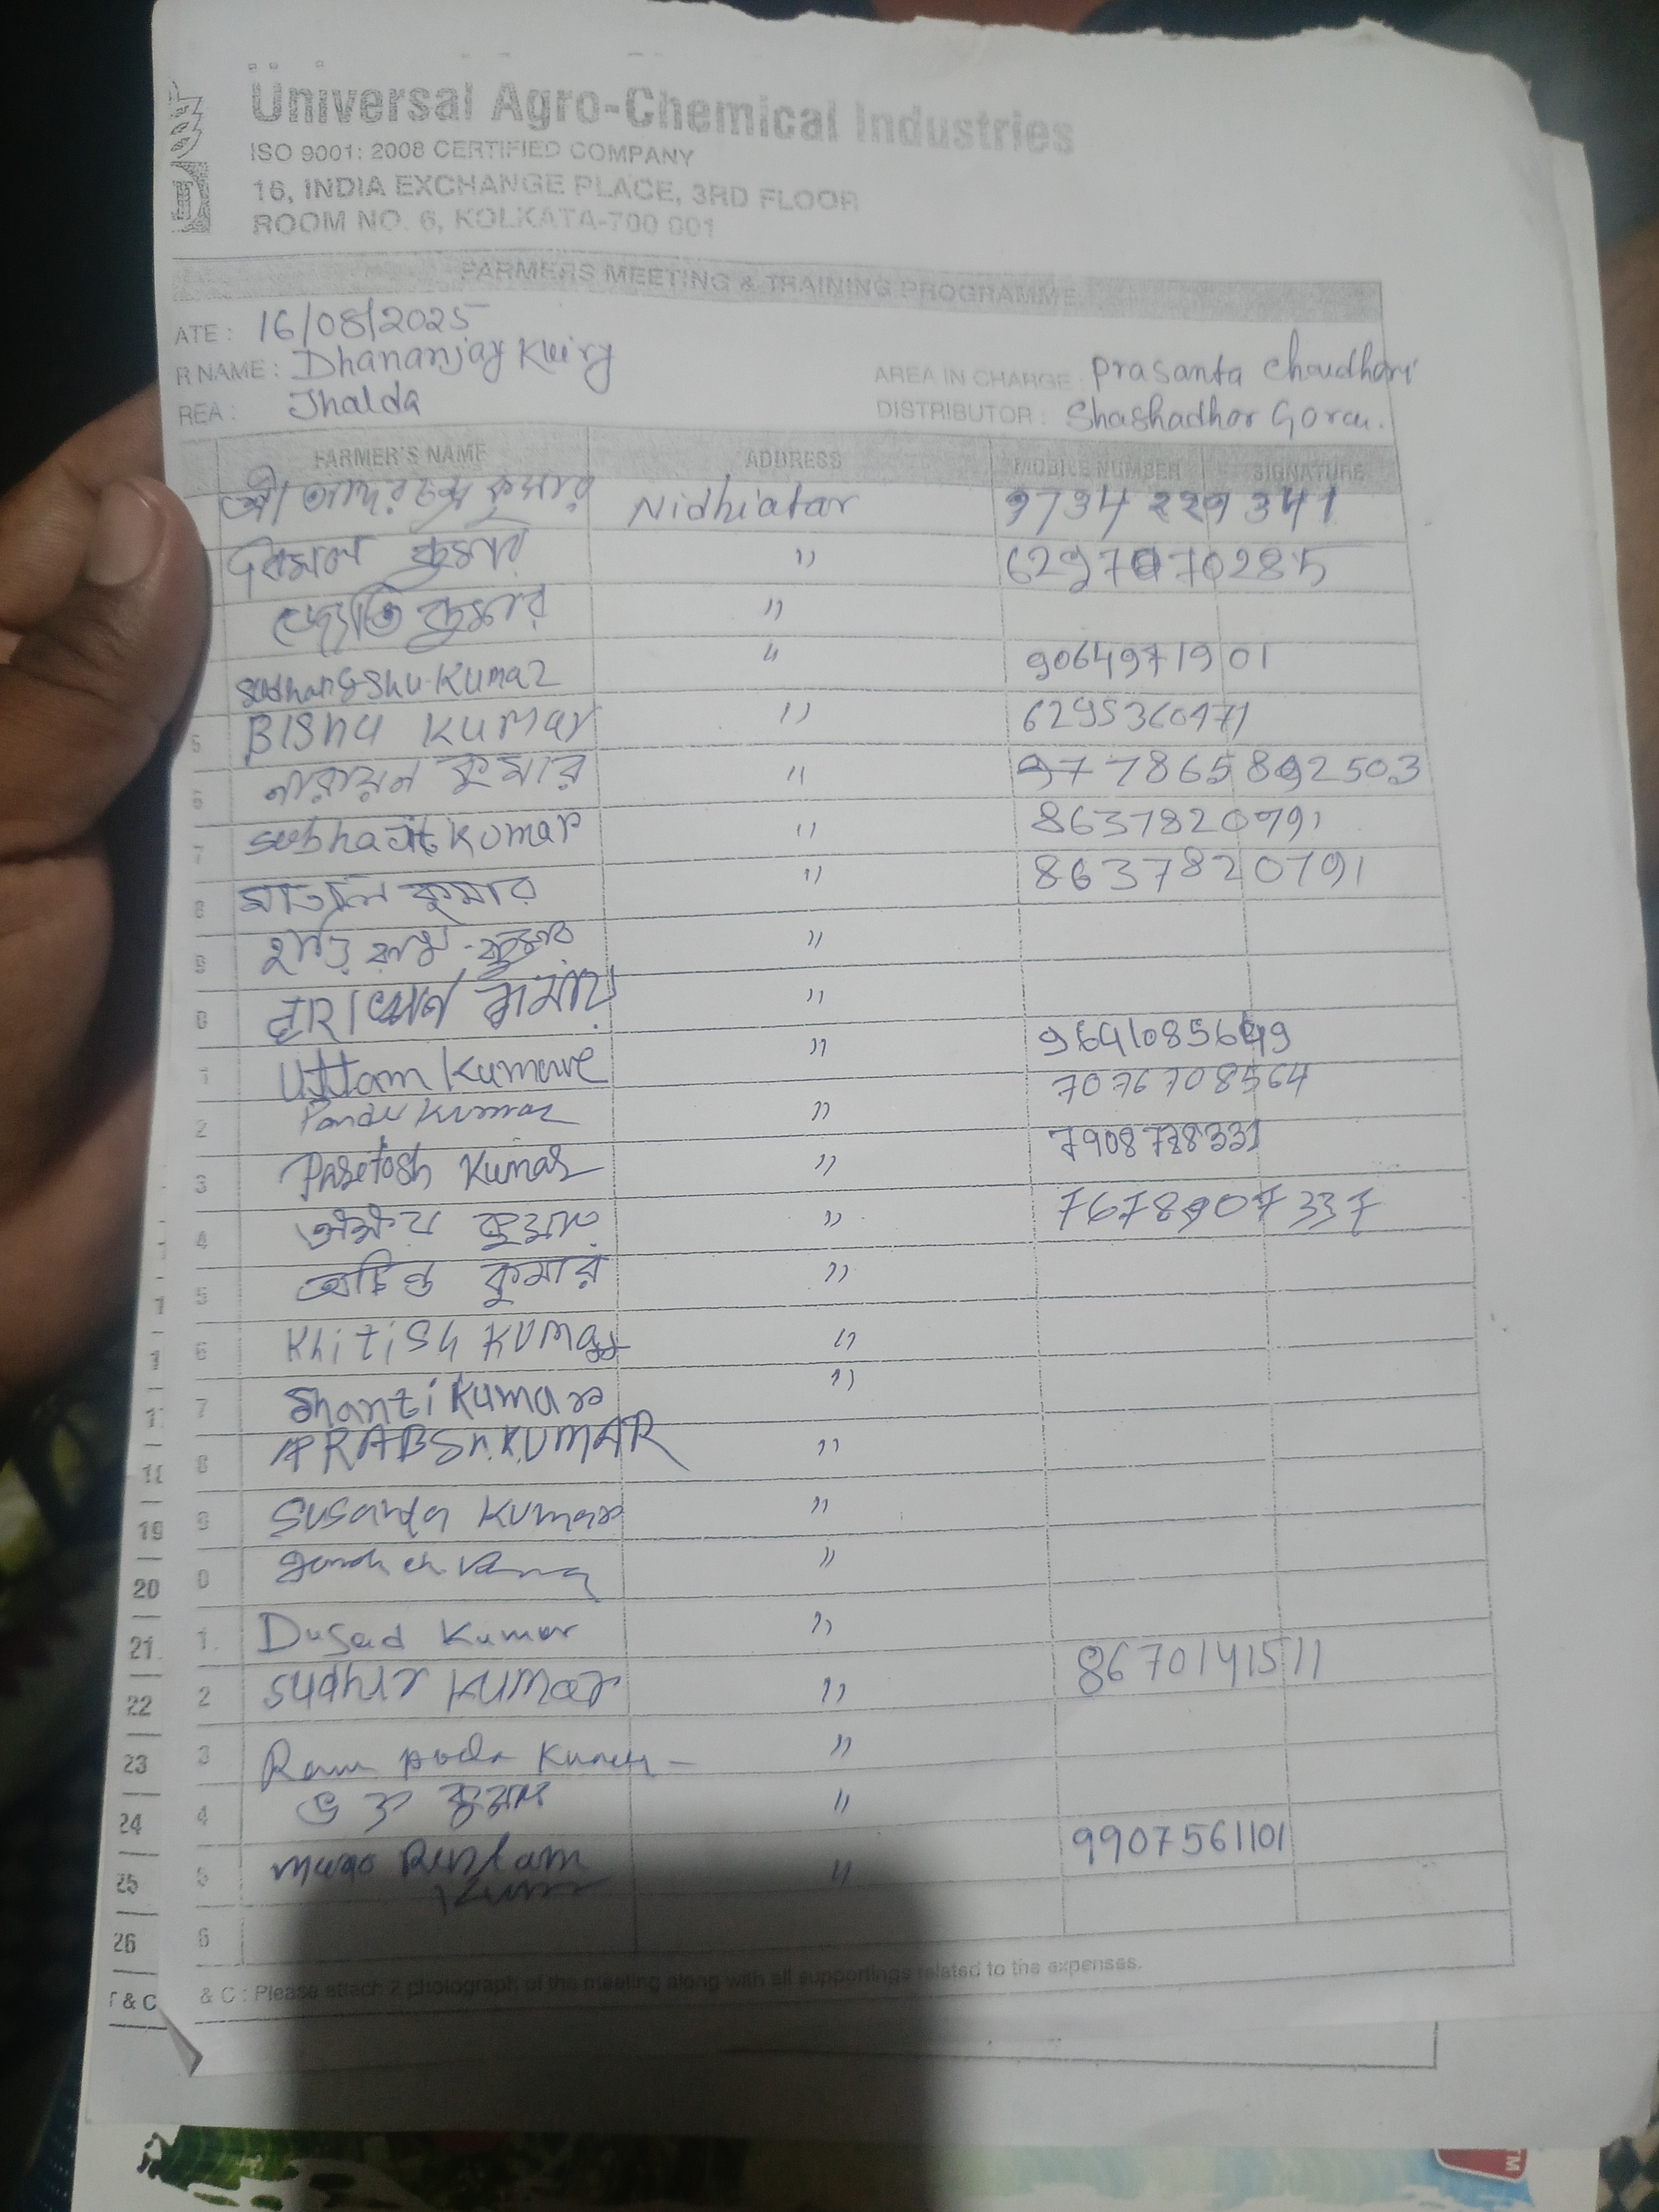 Universal Agro-Chemical Industries
ISO 9001: 2008 CERTIFIED COMPANY
16, INDIA EXCHANGE PLACE, 3RD FLOOR
ROOM NO. 6, KOLKATA-700 001
FARMERS MEETING & TRAINING PROGRAMME
ATE : 16/08/2025
R NAME : Dhananjay Kuiry AREA IN CHARGE : Prasanta Choudhari
REA : Jhalda DISTRIBUTOR : Shashadhor Gorai.
FARMER'S NAME ADDRESS MOBILE NUMBER SIGNATURE
শ্রী আদরচন্দ্র কুমার Nidhiatar 9734229341
বিমল কুমার " 6297070285
জ্যোতি কুমার "
Sudhangshu Kumar " 9064971901
5 BIShu Kumar " 6295360471
6 নারায়ন কুমার " 7865892503
7 Subhajit Kumar " 8637820791
8 কুমার " 8637820791
9 হরি রাম কুমার "
0 হারাধন কুমার "
1 Uttam Kumar " 9641085649
2 Pandu Kumar " 7076708564
3 Paretosh Kumar " 7908728331
4 কুমার " 7678907337
5 অচিন্ত কুমার "
6 Khitish Kumar "
7 Shanti Kumar "
18 8 KUMAR "
19 9 Susanta Kumar "
20 0 "
21 1. Dusad Kumar "
22 2 Sudhir Kumar " 8670141511
23 3 Ram pada Kumar "
24 4 কুমার "
25 5 " 9907561101
26 6
T & C & C : Please attach 2 photograph of the meeting along with all supportings related to the expenses.
TM